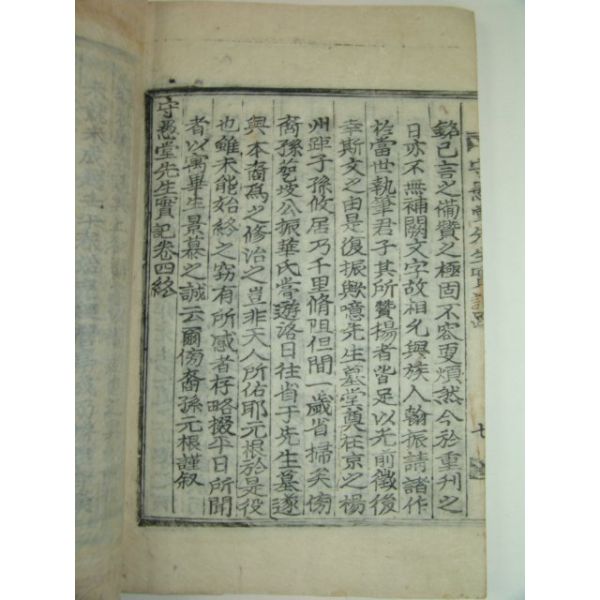 銘已言之備贊之極固不容更煩然今於重刊之
日亦不無補闕文字故相允與族人翰振請諸作
於當世執筆君子其所贊揚者皆足以光前徵後
幸斯文之由是復振歟噫先生墓堂奠在京之楊
州距子孫攸居乃千里脩阻但間一歲省掃矣傍
裔孫苞坡公振華氏嘗遊洛日往省于先生墓遂
與本裔爲之修治之豈非天人所佑耶元根於是役
也雖未能始終之竊有所感者存略掇平日所聞
者以寓畢生景慕之誠云爾傍裔孫元根謹叙
守愚堂先生實記卷四終
守愚堂先生實記跋
七